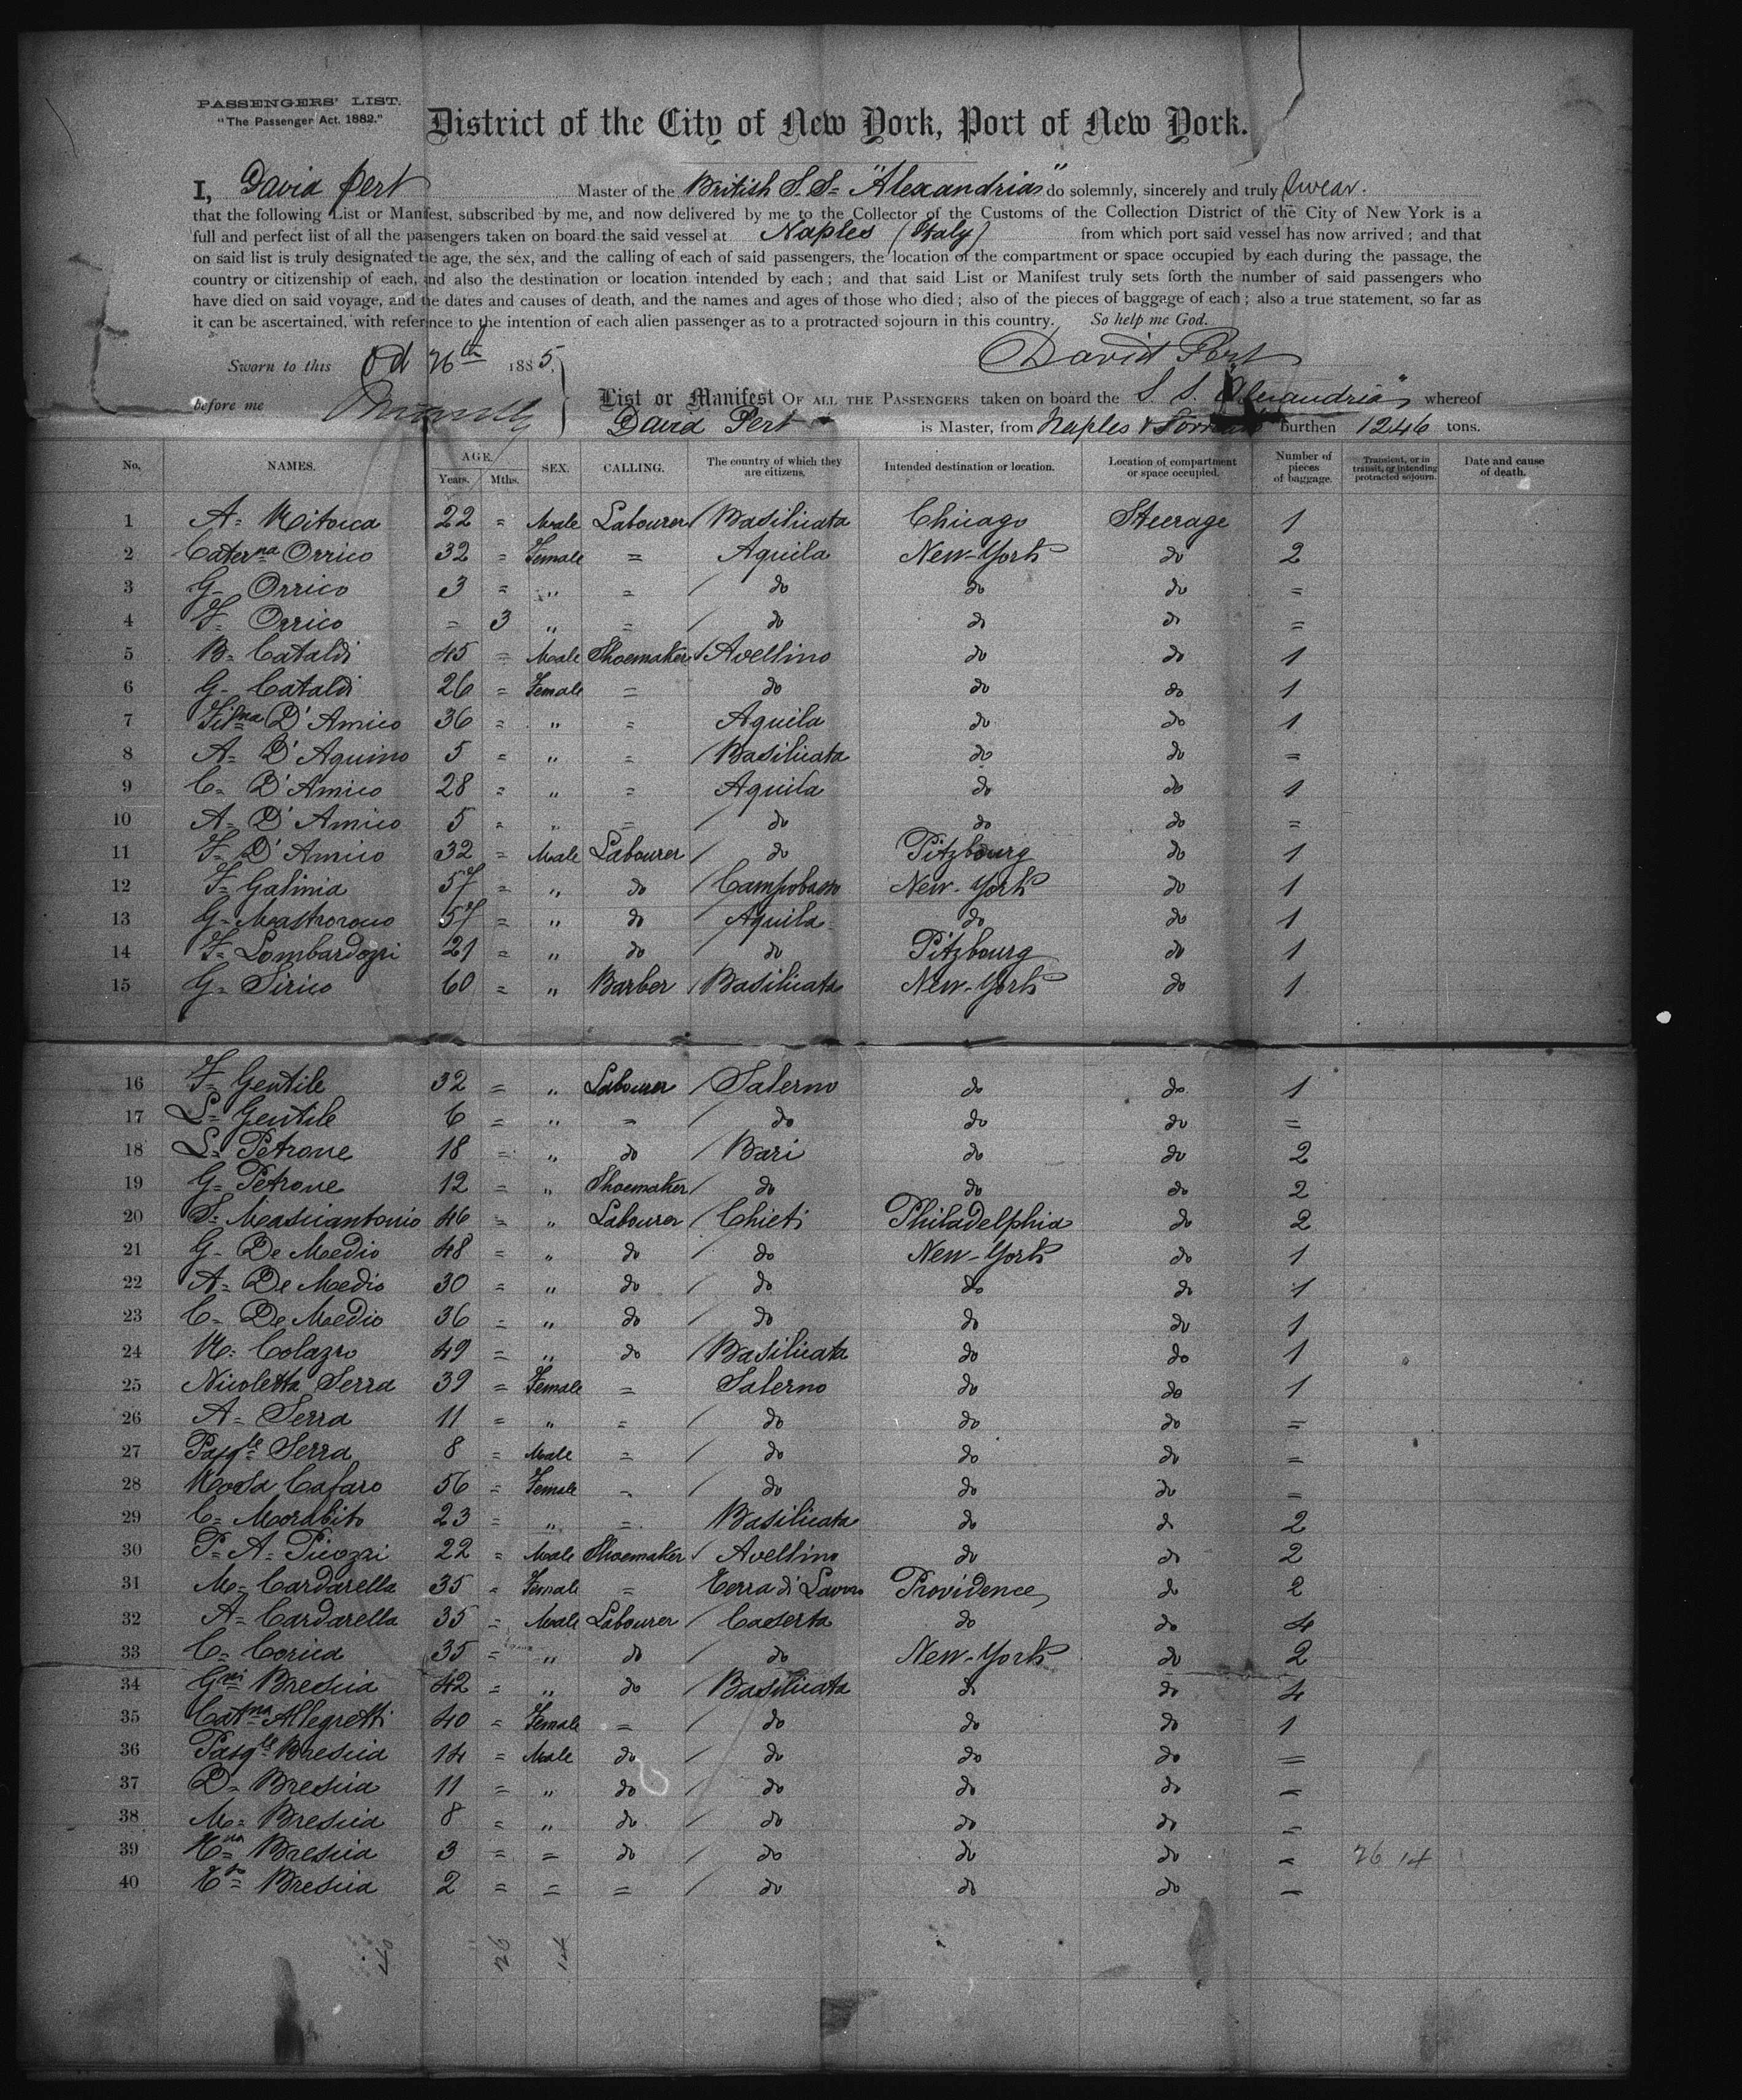 PASSENGERS' LIST.
"The Passenger Act, 1882."
District of the City of New York, Port of New York.
I, David Pert Master of the British S. S. "Alexandria" do solemnly, sincerely and truly swear.
that the following List or Manifest, subscribed by me, and now delivered by me to the Collector of the Customs of the Collection District of the City of New York is a
full and perfect list of all the passengers taken on board the said vessel at Naples (Italy) from which port said vessel has now arrived; and that
on said list is truly designated the age, the sex, and the calling of each of said passengers, the location of the compartment or space occupied by each during the passage, the
country or citizenship of each, and also the destination or location intended by each; and that said List or Manifest truly sets forth the number of said passengers who
have died on said voyage, and the dates and causes of death, and the names and ages of those who died; also of the pieces of baggage of each; also a true statement, so far as
it can be ascertained, with reference to the intention of each alien passenger as to a protracted sojourn in this country. So help me God.
David Pert
Sworn to this Oct 26th 1885.
before me
List or Manifest OF ALL THE PASSENGERS taken on board the S. S. Alexandria" whereof
David Pert is Master, from Naples & burthen 1246 tons.
No. NAMES. AGE. Years. Mths. SEX. CALLING. The country of which they are citizens. Intended destination or location. Location of compartment or space occupied. Number of pieces of baggage. Transient, or in transit, or intending protracted sojourn. Date and cause of death.
1 A= 22 = Male Labourer / Basilicata Chicago Steerage 1
2 Caterna Orrico 32 = Female = Aquila New-York do 2
3 G- Orrico 3 = " = / do do do =
4 F= Orrico = 3 " = / do do do =
5 B= Cataldi 45 = Male Shoemaker / Avellino do do 1
6 G- Cataldi 26 = Female = do do do 1
7 Filna D'Amico 36 = " = Aquila do do 1
8 A= D'Aquino 5 = " = / Basilicata do do =
9 C= D'Amico 28 = " = Aquila do do 1
10 A= D'Amico 5 = " = / do do do =
11 F= D'Amico 32 = Male Labourer / do Pitzbourg do 1
12 F= Galinia 57 = " do / Campobasso New-York do 1
13 G= Mastroroco 57 = " do / Aquila do do 1
14 F= Lombardozzi 21 = " do / do Pitzbourg do 1
15 G= Sirico 60 = " Barber / Basilicata New-York do 1
16 F= Gentile 32 = " Labourer / Salerno do do 1
17 L= Gentile 6 = " = / do do do =
18 L= Petrone 18 = " do / Bari do do 2
19 G= Petrone 12 = " Shoemaker / do do do 2
20 S= Masciantonio 46 = " Labourer / Chieti Philadelphia do 2
21 G- De Medio 48 = " do / do New-York do 1
22 A= De Medio 30 = " do / do do do 1
23 C= De Medio 36 = " do / do do do 1
24 Colazzo 49 = " do / Basilicata do do 1
25 Nicoletta Serra 39 = Female = Salerno do do 1
26 A= Serra 11 = " = / do do do =
27 Pasqle Serra 8 = Male = / do do do =
28 Rosa Cafaro 56 = Female = / do do do =
29 C= Morabito 23 = " = Basilicata do do 2
30 P= A= Picozzi 22 = Male Shoemaker / Avellino do do 2
31 M= Cardarella 35 = Female = Terra di Lavoro Providence do 2
32 A= Cardarella 35 = Male Labourer / Caserta do do 4
33 C= Corica 35 = " do / do New-York do 2
34 Gni Brescia 42 = " do / Basilicata do do 4
35 Catna Allegretti 40 = Female = / do do do 1
36 Pasqle Brescia 14 = Male do / do do do =
37 D= Brescia 11 = " do / do do do =
38 M= Brescia 8 = " do / do do do =
39 Brescia 3 = = do / do do do = 26 14
40 Brescia 2 = = = / do do do =
40 26 14